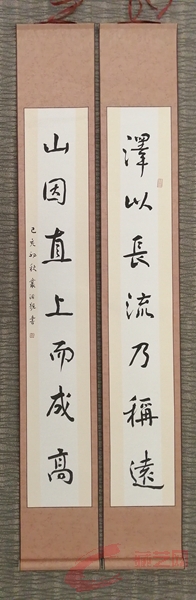 澤以長流乃稱遠
山因直上而成高
己亥初秋